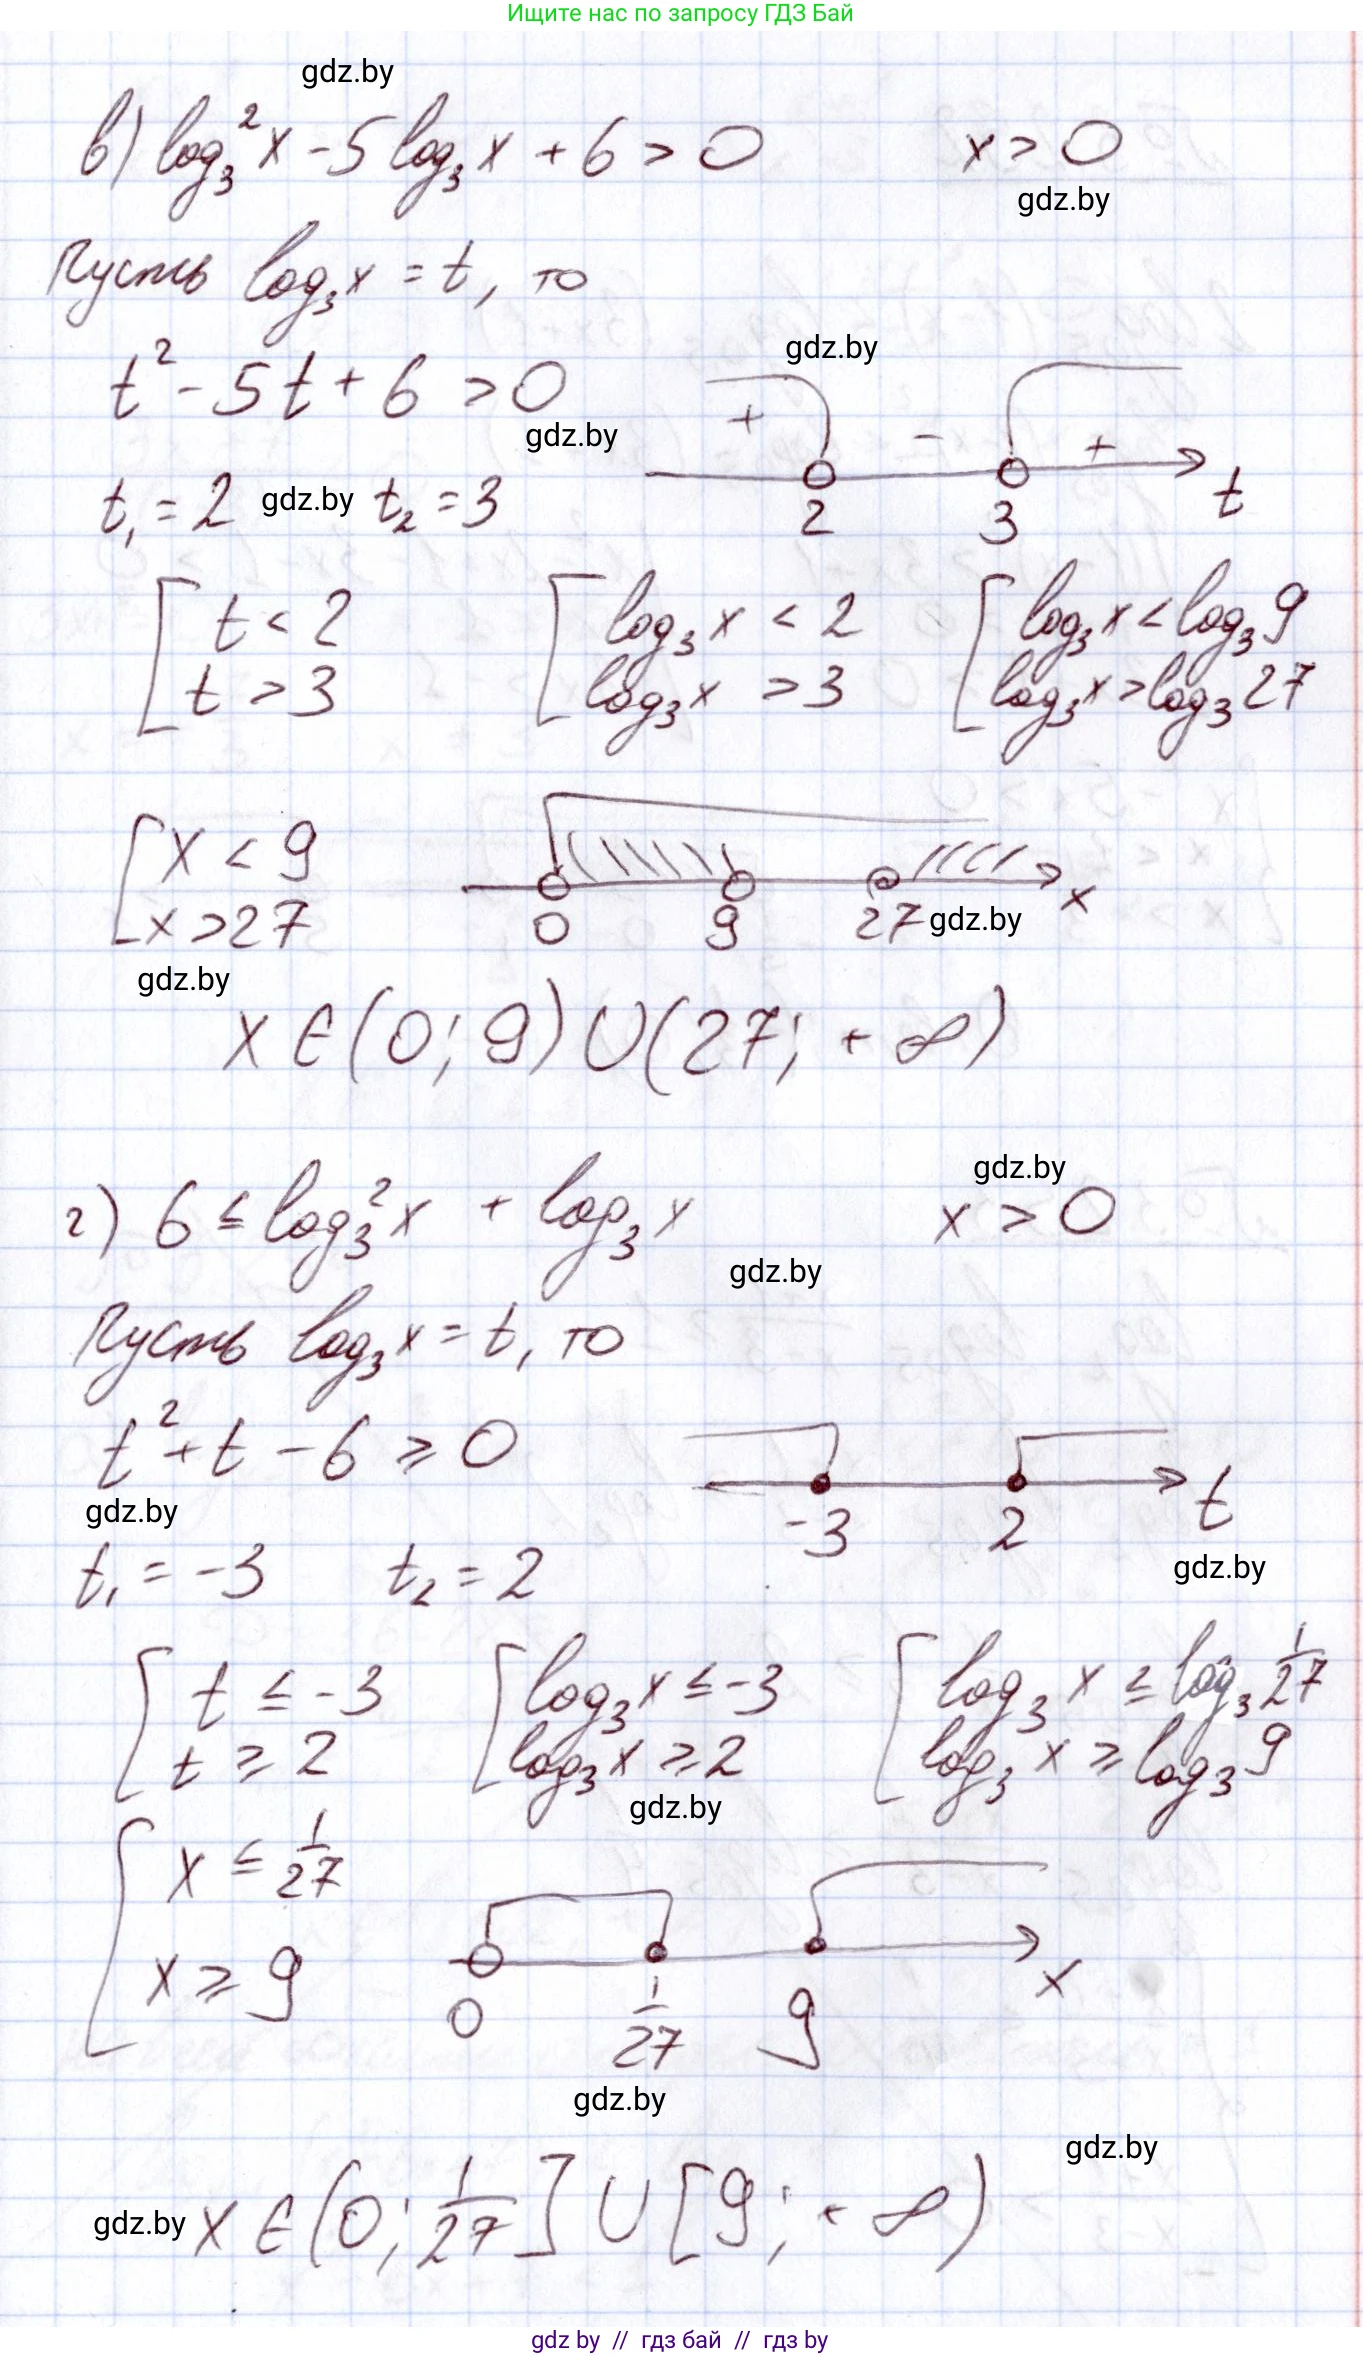 Ищите нас по запросу ГДЗ Бай
gdz.by
в) log₃²x - 5log₃x + 6 > 0 x > 0
gdz.by
Пусть log₃x = t, то
gdz.by
t² - 5t + 6 > 0
gdz.by
+ - +
t₁ = 2 gdz.by t₂ = 3
2 3 t
[ t < 2 [ log₃x < 2 [ log₃x < log₃9
t > 3 log₃x > 3 log₃x > log₃27
[ x < 9
x > 27
0 9 27 x
gdz.by
gdz.by
x ∈ (0; 9) ∪ (27; +∞)
gdz.by
г) 6 ≤ log₃²x + log₃x x > 0
gdz.by
Пусть log₃x = t, то
t² + t - 6 ≥ 0
-3 2 t
gdz.by
gdz.by
t₁ = -3 t₂ = 2
[ t ≤ -3 [ log₃x ≤ -3 [ log₃x ≤ log₃ 1/27
t ≥ 2 log₃x ≥ 2 log₃x ≥ log₃9
gdz.by
[ x ≤ 1/27
x ≥ 9
0 1/27 9 x
gdz.by
gdz.by
gdz.by x ∈ (0; 1/27] ∪ [9; +∞)
gdz.by // гдз бай // гдз by